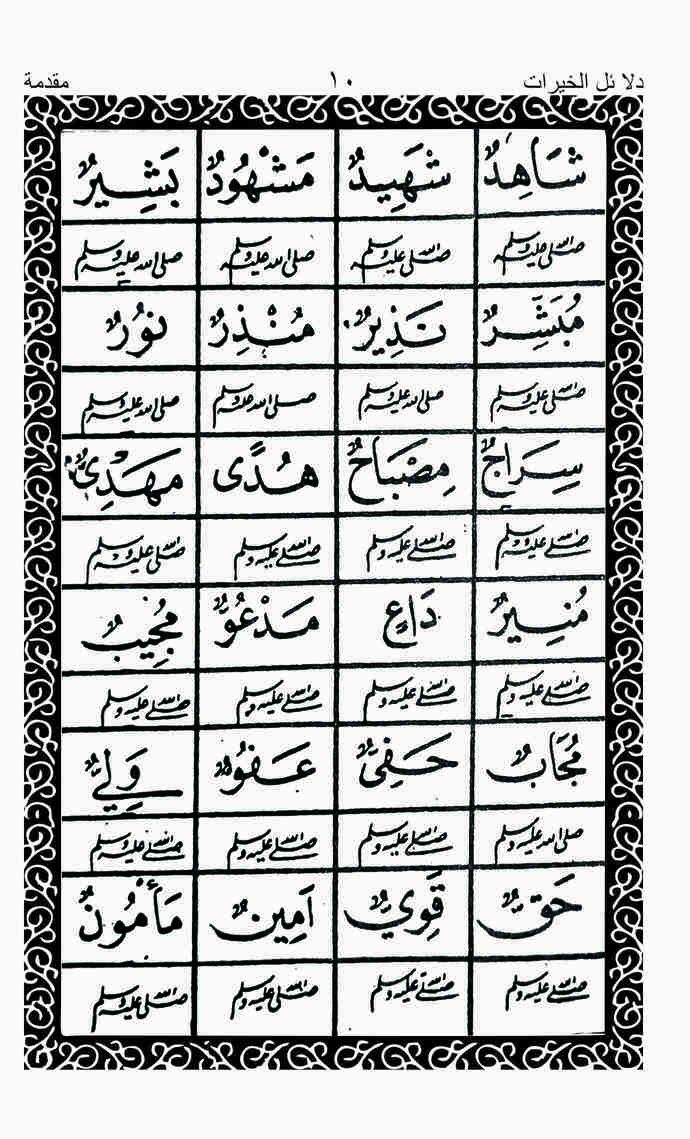 دلائل الخيرات ١٠ مقدمة
شَاهِدٌ شَهِيدٌ مَشْهُودٌ بَشِيرٌ
صلى الله عليه وسلم صلى الله عليه وسلم صلى الله عليه وسلم صلى الله عليه وسلم
مُبَشِّرٌ نَذِيرٌ مُنْذِرٌ نُورٌ
صلى الله عليه وسلم صلى الله عليه وسلم صلى الله عليه وسلم صلى الله عليه وسلم
سِرَاجٌ مِصْبَاحٌ هُدًى مَهْدِيٌّ
صلى الله عليه وسلم صلى الله عليه وسلم صلى الله عليه وسلم صلى الله عليه وسلم
مُنِيرٌ دَاعٍ مَدْعُوٌّ مُجِيبٌ
صلى الله عليه وسلم صلى الله عليه وسلم صلى الله عليه وسلم صلى الله عليه وسلم
مُجَابٌ حَفِيٌّ عَفُوٌّ وَلِيٌّ
صلى الله عليه وسلم صلى الله عليه وسلم صلى الله عليه وسلم صلى الله عليه وسلم
حَقٌّ قَوِيٌّ اَمِينٌ مَأْمُونٌ
صلى الله عليه وسلم صلى الله عليه وسلم صلى الله عليه وسلم صلى الله عليه وسلم